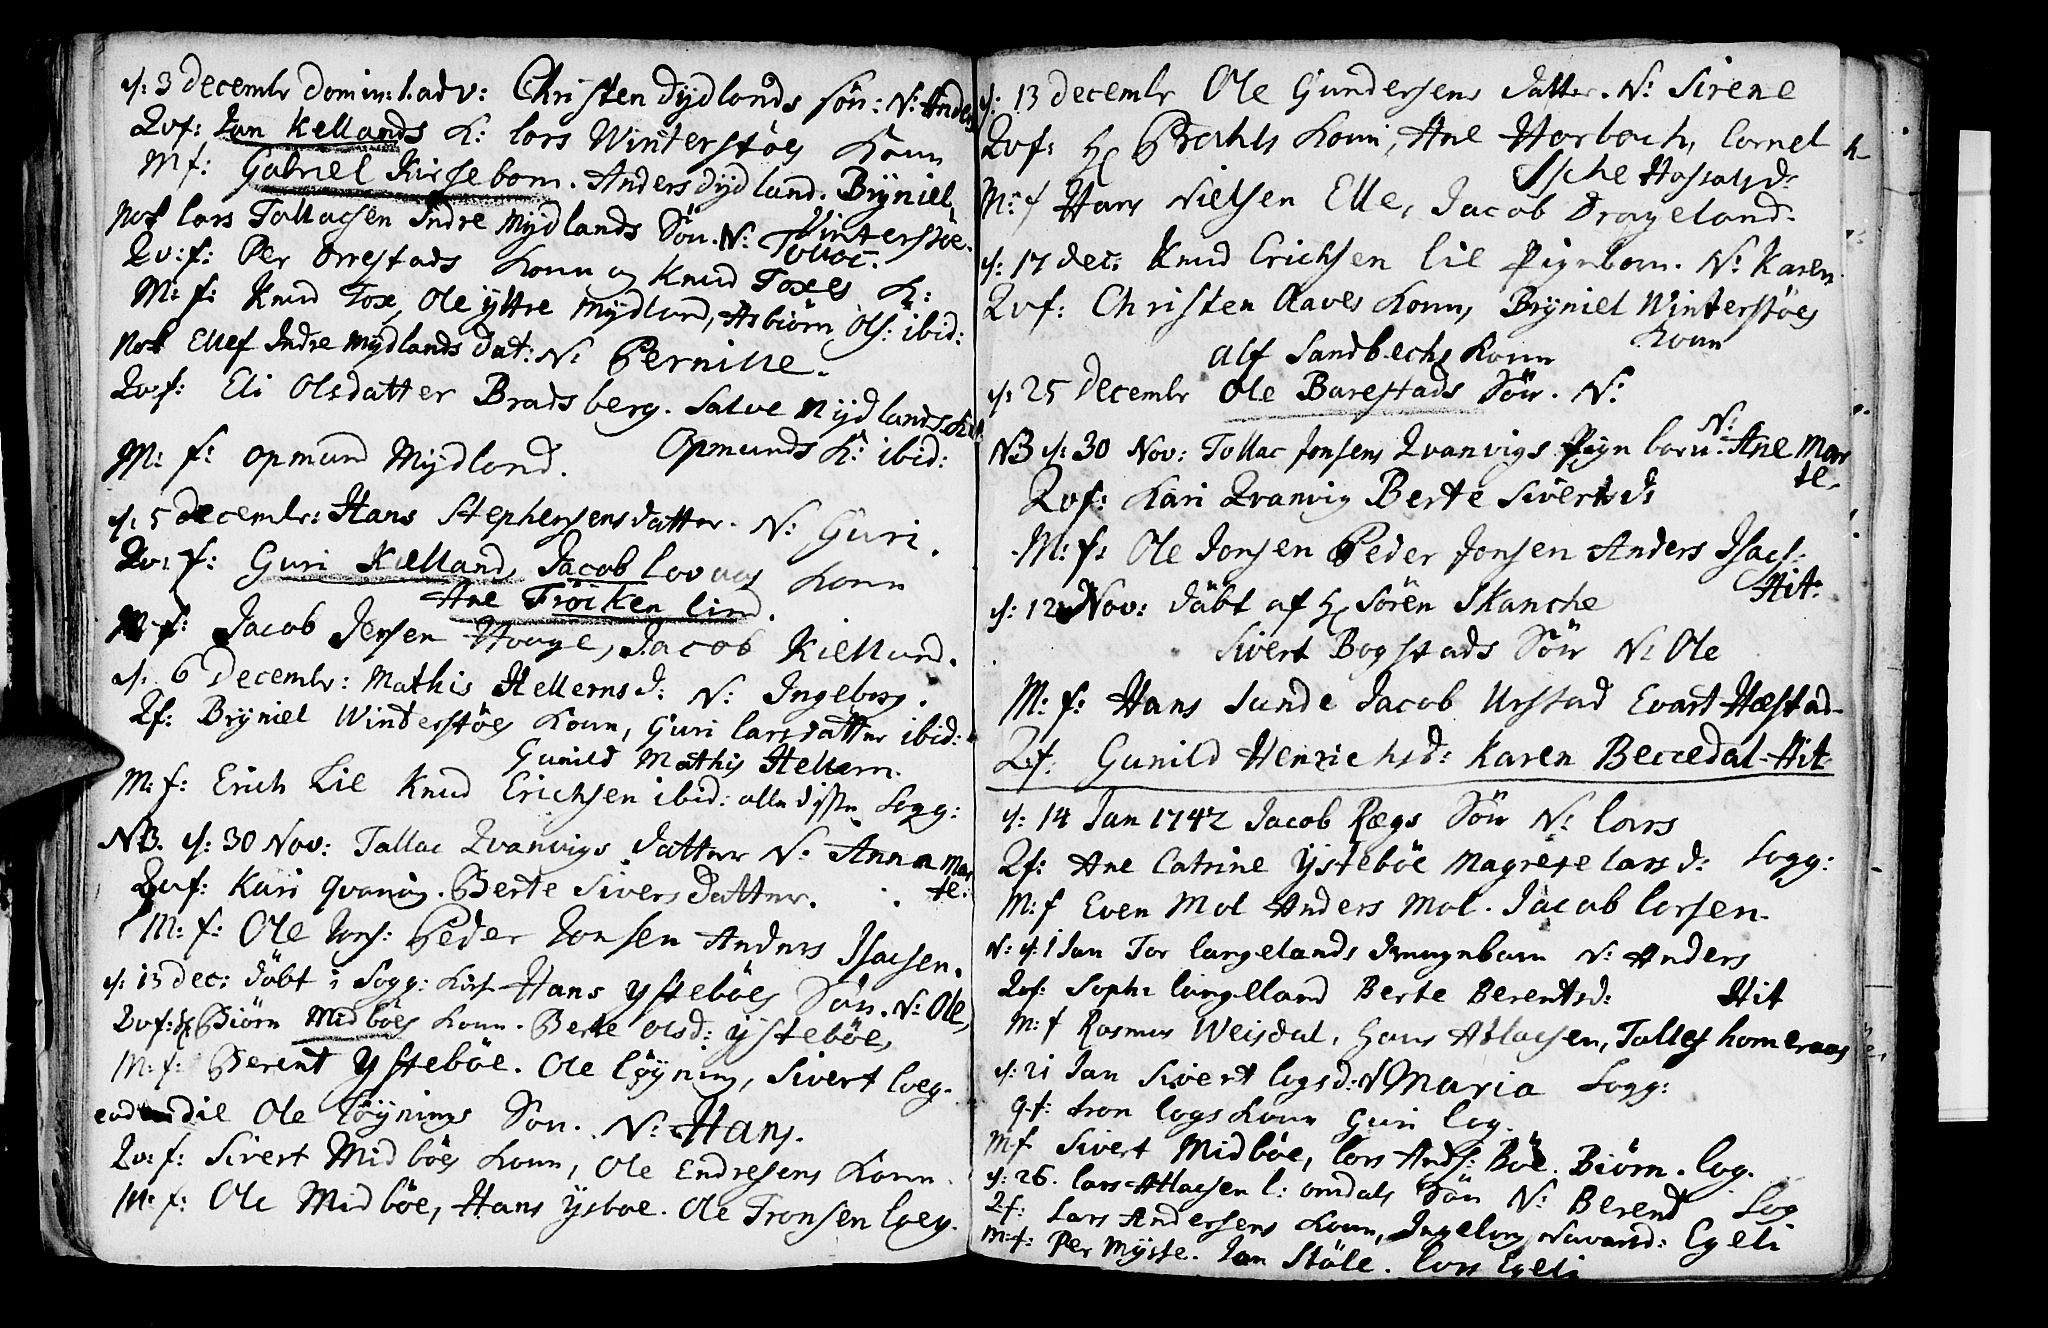 d: 3 decembr domin: 1: adv: Christen dydlands sön: N: Anders
Qvf: Jan Kellands K: lars Winterstöes Konn
Mf: Gabriel Kirsebom. Anders dydland. Bryniel
Winterstöe.
Not lars Tollacsen Indre Mydlands Sön. N: Tollac.
Qv: f: Per Orrestads Konn og Knud Toxes K:
M: f: Knud Toxe, Ole yttre Mydland, Asbiörn Ols: ibid:
Not Ellef Indre Mydlands dat: N: Pernille.
Qvf: Eli Olsdatter Bradsberg. Salve Mydlands K:
Opmunds K: ibid:
M: f: Opmund Mydland.
d: 5 decembr: Hans Stephensens datter. N: Guri.
Qv: f: Guri Kielland, Jacob lovaas Konn
Ane Fröiken lind.
M: f: Jacob Jensen Houge, Jacob Kielland.
d. 6 decembr: Mathis Hellerns d: N: Ingeborg.
Qf: Bryniel Winterstöes Konn, Guri larsdatter ibid:
Gunild Mathis Hellern.
M: f: Erich Lie Knud Erichsen ibid: alle disse Sogg:
NB. d: 30 Nov: Tallac Qvanvigs datter N: Anna Mar
te:
Qvf: Kari Qvanvig. Berte Siversdatter.
M: f: Ole Jons: Peder Jonsen Anders Isacsen.
d: 13 dec: döbt i Sogg: Kirk Hans Ysteböes Sön. N: Ole,
Qvf: H Biörn Midböes Konn. Berte Olsd: Ysteböe,
M: f: Berent Ysteböe. Ole löyning, Sivert loeg.
eodem die Ole löynings Sön. N: Hans.
Qv: f: Sivert Midböes Konn, Ole Endresens Konn.
M: f: Ole Midböe, Hans Ysboe. Ole Tronsen loeg.
d: 13 decembr Ole Gundersens datter. N: Sirene
Qvf: H Prahls Konn, Ane Horbach, Cornel
Ische Hassalsdr
M: f Hans Nielsen Elle, Jacob Drageland.
d: 17 dec: Knud Erichsen lie Pigebarn. N: Karen
Qvf: Christen Aaves Konn, Bryniel Winterstöes
Konn
Alf Sandbechs Konn
d: 25 decembr Ole Barestads Sön. N:
N:
NB d: 30 Nov: Tollac Jonsens Qvanvigs Pign barn. Ane Mar
te.
Qvf: Kari Qvanvig Berte Sivertsd:
M: f: Ole Jonsen Peder Jonsen Anders Isacs:
Hit:
d: 12 Nov: döbt af H Sören Skanche
Sivert Bogstads Sön N: Ole
M: f: Hans Sunde Jacob Urstad Evart Hæstad
Qf. Gunild Henrichsd: Karen Beccedal Hit:
d: 14 Jan 1742 Jacob Rægs Sön N: lars
Qf: Ane Catrine Ysteböe Magrete larsd: Sogg:
M: f Even Mol Anders Mol. Jacob larsen
N: d: 1 Jan Tor langelands drengebarn N: Anders
Qvf: Sophi langelland Berte Berentsd: Hit
M: f Rasmus Weisdal, Hans Atlacsen, Talles homeraas
d: 21 Jan Sivert logsd: N Maria Sogg:
Q: f: tron logs Konn Guri log.
M: f Sivert Midböe, lars Ands: Böe. Biörn. log.
d: 26. lars Atlacsen l: omdals Sön N: Berend Sog
Qf: Lars Andersens Konn, Ingeborg d: Egeli
M: f: Per Mysse. Jan Stöle. lars Egeli